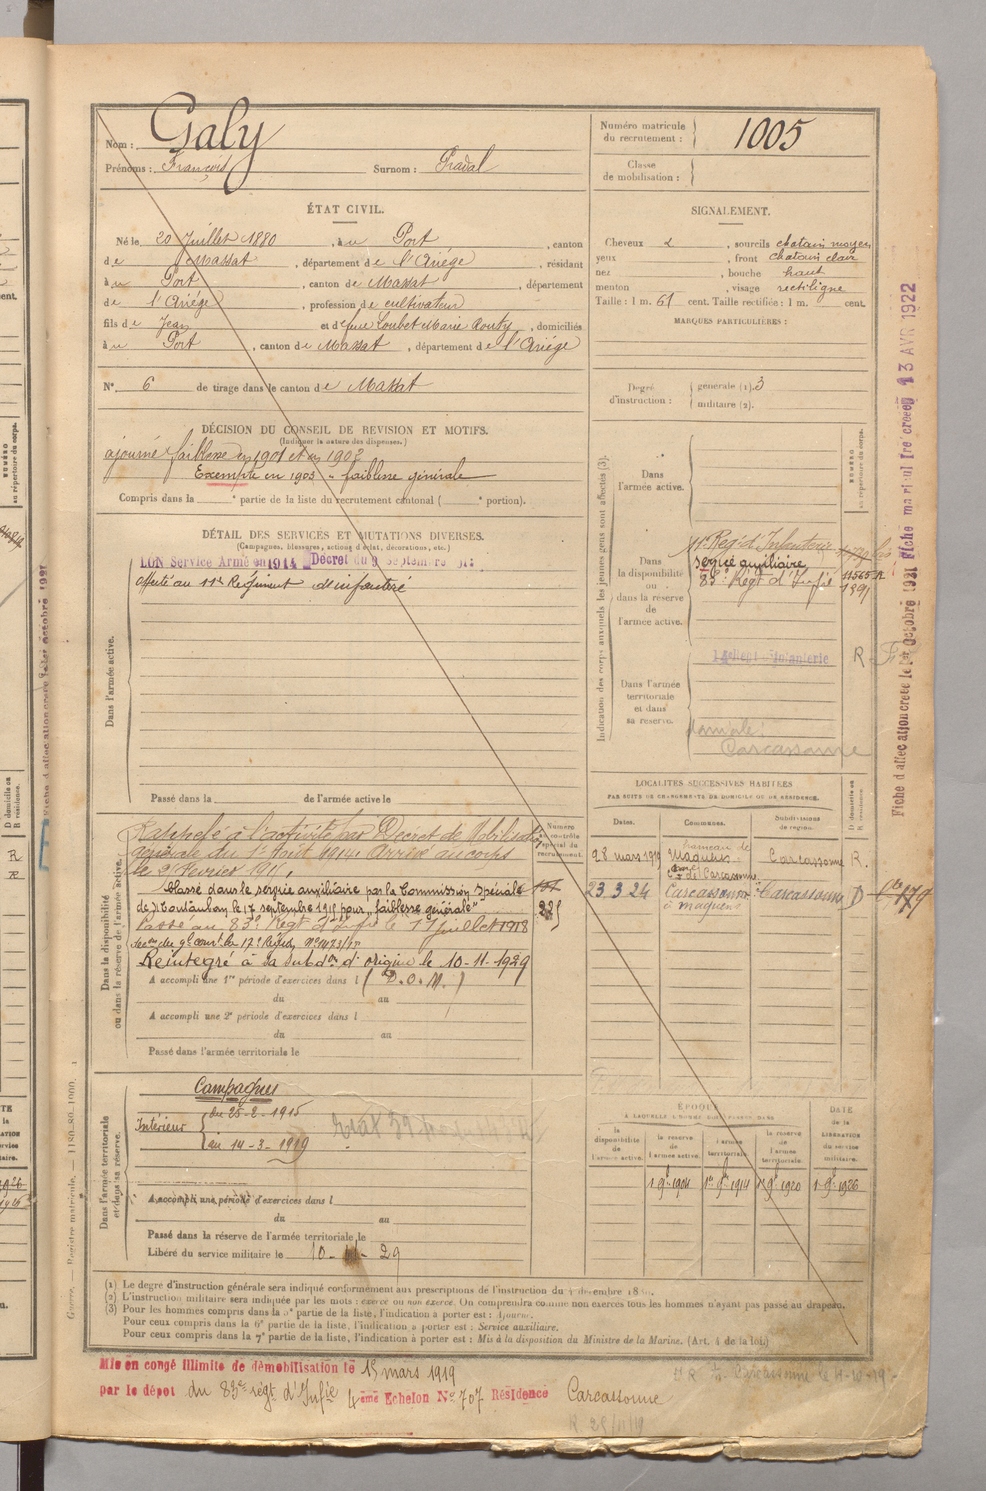 Nom : Galy
Prénoms : François Surnom : Pradal
Numéro matricule
du recrutement : 1005
Classe
de mobilisation :
ÉTAT CIVIL.
Né le 20 Juillet 1880, à u Port, canton
de Massat, département de l'Ariège, résidant
à u Port, canton de Massat, département
de l'Ariège, profession de cultivateur
fils de Jean et de feue Loubet Marie, domiciliés
à u Port, canton de Massat, département de l'Ariège
N° 6 de tirage dans le canton de Massat
SIGNALEMENT.
Cheveux , sourcils chatain moyen
yeux , front chatain clair
nez , bouche haut
menton , visage rectiligne
Taille : 1 m. 61 cent. Taille rectifiée : 1 m. cent.
MARQUES PARTICULIÈRES :
Degré
d'instruction :
générale (1). 3
militaire (2).
DÉCISION DU CONSEIL DE REVISION ET MOTIFS.
(Indiquer la nature des dispenses.)
ajourné faiblesse en 1901 et en 1902
Exempté en 1903 - faiblesse générale
Compris dans la e partie de la liste du recrutement cantonal ( e portion).
DÉTAIL DES SERVICES ET MUTATIONS DIVERSES.
(Campagnes, blessures, actions d'éclat, décorations, etc.)
BON Service Armé en 1914 Décret du 9 Septembre
Affecté au 11e Régiment d'infanterie
Dans l'armée active.
Passé dans la de l'armée active le
Indication des corps auxquels les jeunes gens sont affectés (3).
NUMÉRO
au répertoire du corps.
Dans
l'armée active.
Dans
la disponibilité
ou
dans la réserve
de
l'armée active.
11e Régt d'Infanterie
service auxiliaire
83e Régt d'Infie
11565 R
1391
Dans l'armée
territoriale
et dans
sa réserve.
R
Carcassonne
Dans la disponibilité
ou dans la réserve de l'armée active.
Numéro
au contrôle
spécial du
recrutement.
Rappelé à l'activité par Décret de Mobilisation
générale du 1er Août 1914. Arrivé au corps
le 2 Février 1915.
Classé dans le service auxiliaire par la Commission Spéciale
de Montauban le 17 septembre 1915 pour "faiblesse générale"
Passé au 83e Régt d'Infie le 11 Juillet 1918
Réintégré à sa subdon d'origine le 10-11-1929
A accompli une 1re période d'exercices dans l (D.O.M.)
du au
A accompli une 2e période d'exercices dans l
du au
Passé dans l'armée territoriale le
LOCALITÉS SUCCESSIVES HABITÉES
PAR SUITE DE CHANGEMENTS DE DOMICILE OU DE RÉSIDENCE.
Dates. Communes. Subdivisions
de région.
D domicile ou
R résidence.
28 mars 1919 Maquens Carcassonne R.
Con de Carcassonne
23.3.24 Carcassonne Carcassonne D
à Maquens
179
Dans l'armée territoriale
et dans sa réserve.
Campagnes
Intérieur
du 25-2-1915
au 14-3-1919
A accompli une période d'exercices dans l
du au
Passé dans la réserve de l'armée territoriale le
Libéré du service militaire le 10-11-29
ÉPOQUE
À LAQUELLE L'HOMME DOIT PASSER DANS
la
disponibilité
de
l'armée active.
la réserve
de
l'armée active.
l'armée
territoriale.
la réserve
de
l'armée
territoriale.
DATE
de la
LIBÉRATION
du service
militaire.
1 9bre 1904 1er 9bre 1914 1 9bre 1920 1 9bre 1926
(1) Le degré d'instruction générale sera indiqué conformément aux prescriptions de l'instruction du
(2) L'instruction militaire sera indiquée par les mots : exercé ou non exercé. On comprendra comme non exercés tous les hommes n'ayant pas passé au drapeau.
(3) Pour les hommes compris dans la 5e partie de la liste, l'indication à porter est : Ajourné.
Pour ceux compris dans la 6e partie de la liste, l'indication à porter est : Service auxiliaire.
Pour ceux compris dans la 7e partie de la liste, l'indication à porter est : Mis à la disposition du Ministre de la Marine. (Art. 4 de la loi)
Mis en congé illimité de démobilisation le 15 mars 1919
par le dépôt du 83e régt d'Infie 4ème Echelon No 707 Résidence Carcassonne
Carcassonne le 4-10-19
Fiche d'affectation créée le 1er Octobre 1921 Fiche matricule créée 13 AVR 1922
Guerre. — Registre matricule.